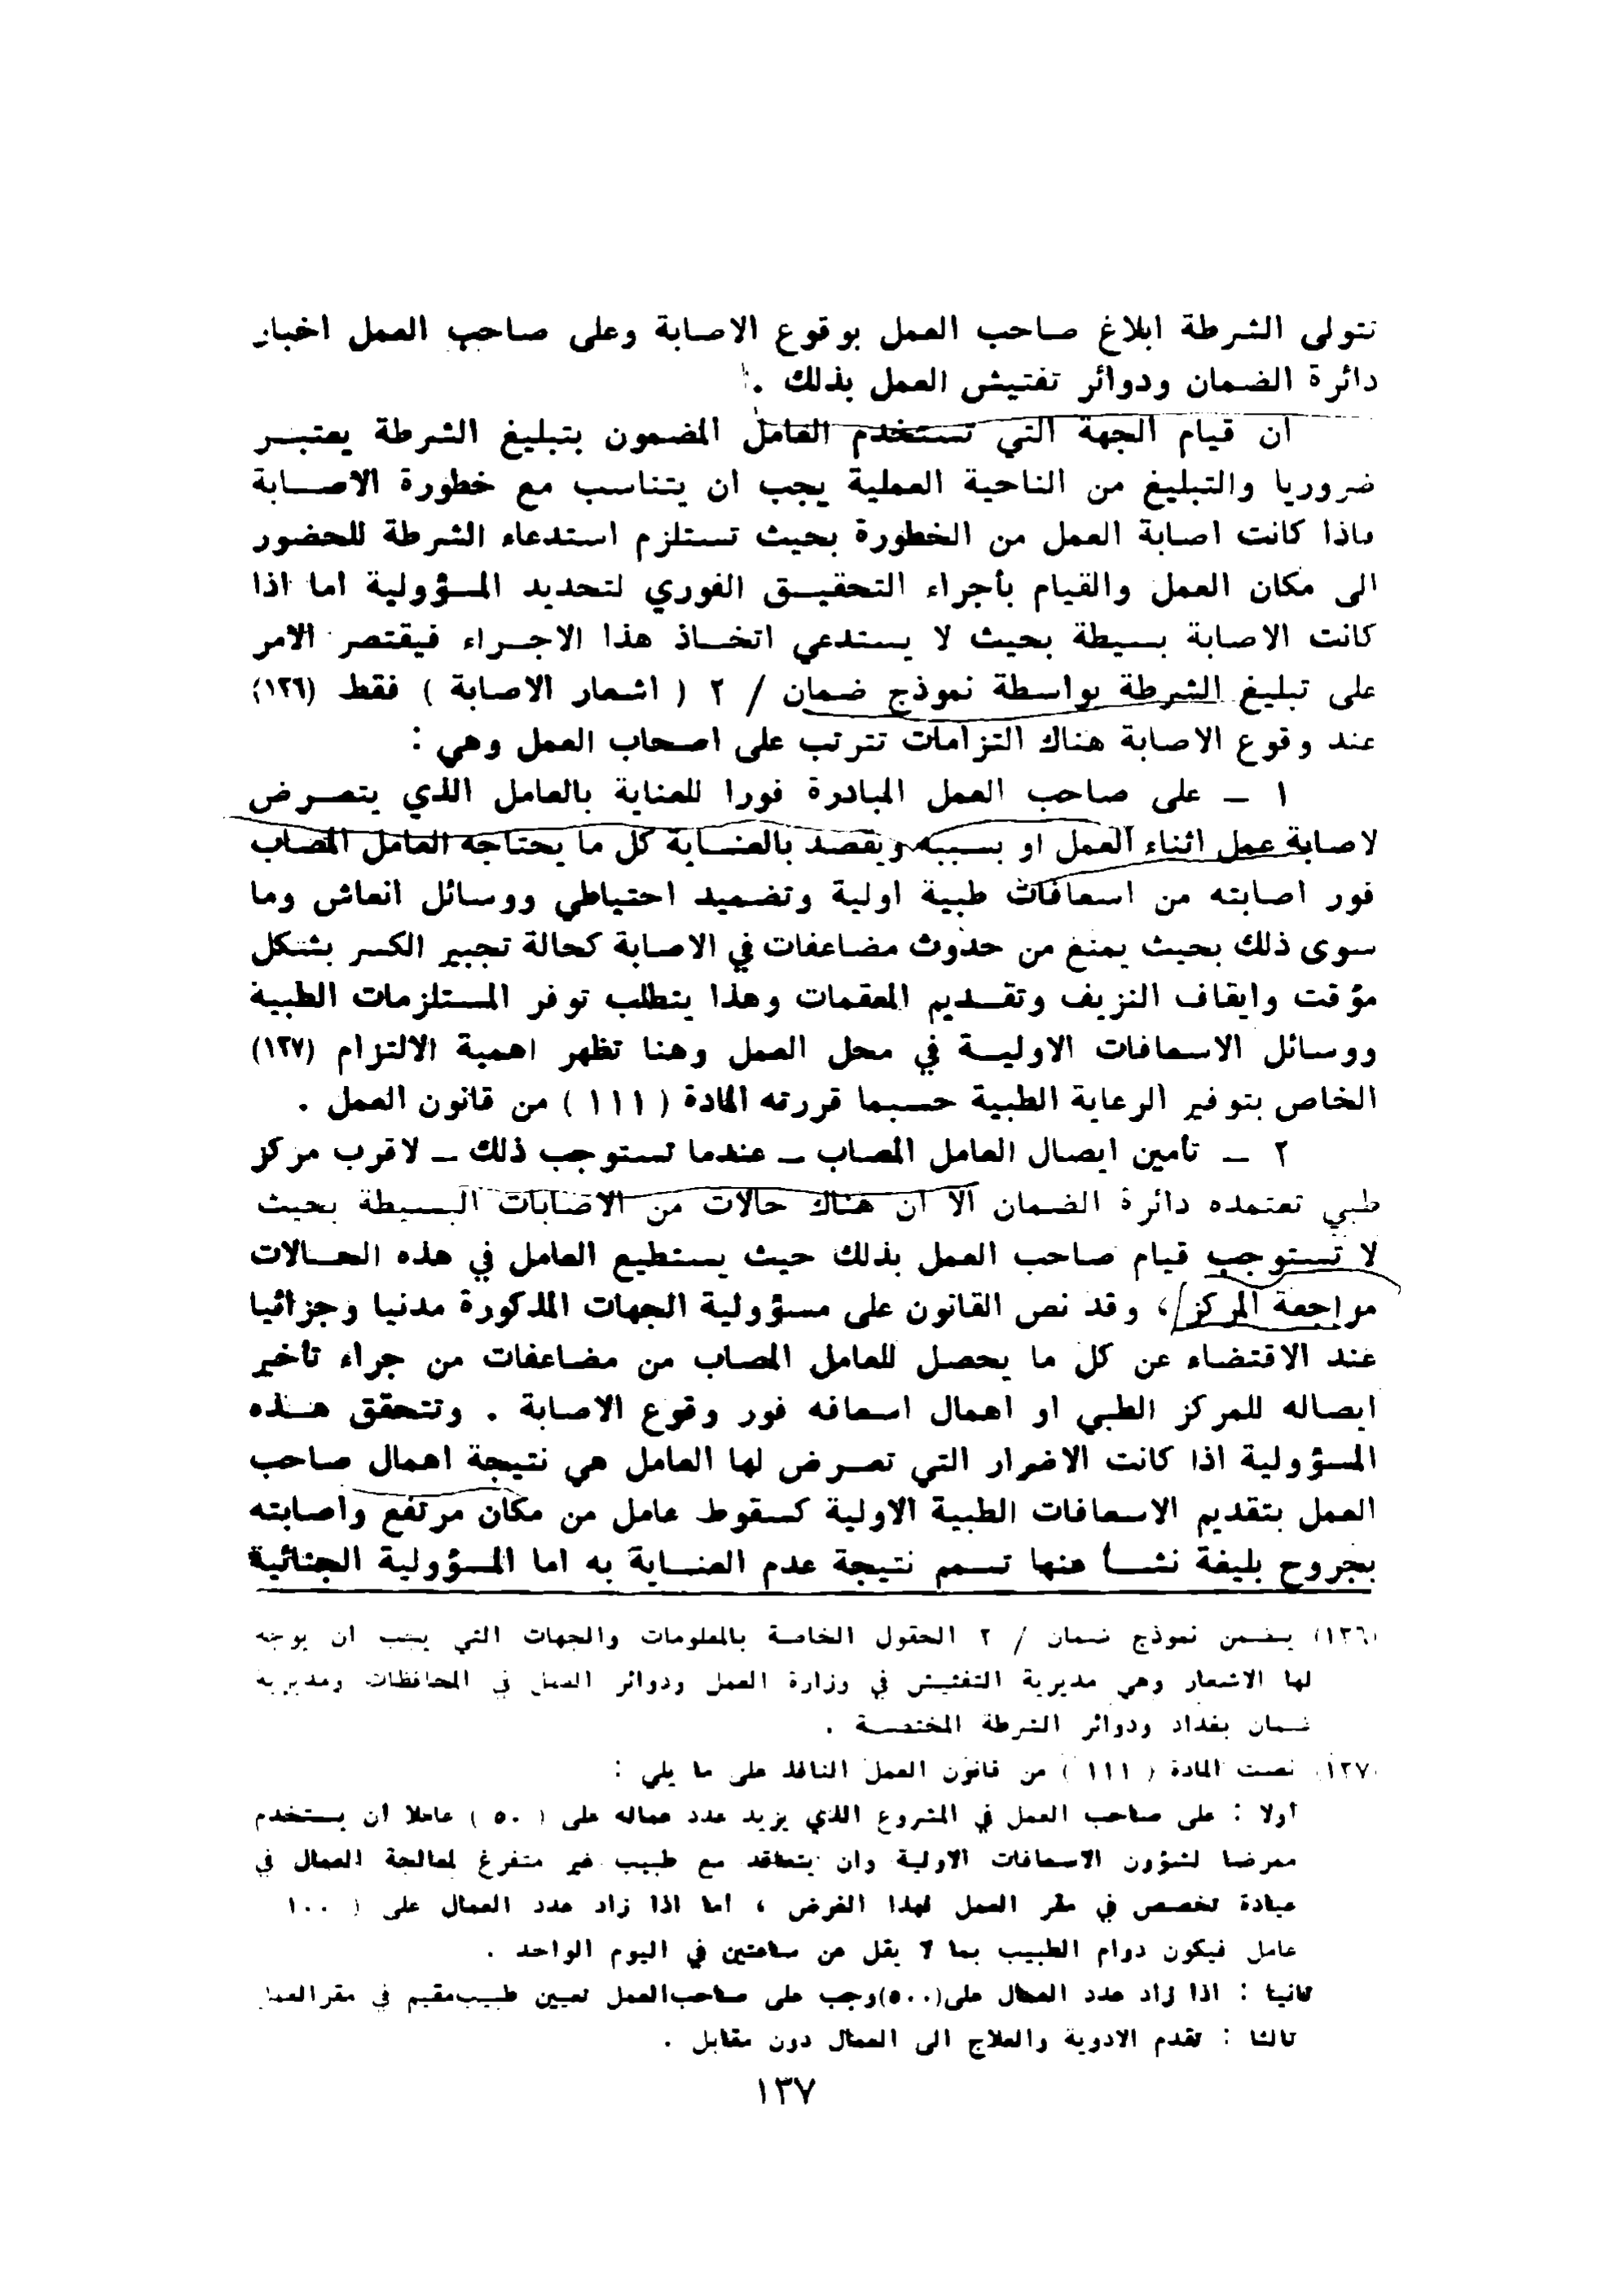 تتولى الشرطة ابلاغ صاحب العمل بوقوع الاصابة وعلى صاحب العمل اخبار
دائرة الضمان ودوائر تفتيش العمل بذلك .
ان قيام الجهة التي تستخدم العامل المضمون بتبليغ الشرطة يعتبر
ضروريا والتبليغ من الناحية العملية يجب ان يتناسب مع خطورة الاصابة
فاذا كانت اصابة العمل من الخطورة بحيث تستلزم استدعاء الشرطة للحضور
الى مكان العمل والقيام بأجراء التحقيق الفوري لتحديد المسؤولية اما اذا
كانت الاصابة بسيطة بحيث لا يستدعي اتخاذ هذا الاجراء فيقتصر الامر
على تبليغ الشرطة بواسطة نموذج ضمان / ٢ ( اشعار الاصابة ) فقط (١٣٦)
عند وقوع الاصابة هناك التزامات تترتب على اصحاب العمل وهي :
١ – على صاحب العمل المبادرة فورا للعناية بالعامل الذي يتعرض
لاصابة عمل اثناء العمل او بسببه ويقصد بالعناية كل ما يحتاجه العامل المصاب
فور اصابته من اسعافات طبية اولية وتضميد احتياطي ووسائل انعاش وما
سوى ذلك بحيث يمنع من حدوث مضاعفات في الاصابة كحالة تجبير الكسر بشكل
مؤقت وايقاف النزيف وتقديم المعقمات وهذا يتطلب توفر المستلزمات الطبية
ووسائل الاسعافات الاولية في محل العمل وهنا تظهر اهمية الالتزام (١٣٧)
الخاص بتوفير الرعاية الطبية حسبما قررته المادة ( ١١١ ) من قانون العمل .
٢ – تأمين ايصال العامل المصاب – عندما تستوجب ذلك – لاقرب مركز
طبي تعتمده دائرة الضمان الا ان هناك حالات من الاصابات البسيطة بحيث
لا تستوجب قيام صاحب العمل بذلك حيث يستطيع العامل في هذه الحالات
مراجعة المركز ، وقد نص القانون على مسؤولية الجهات المذكورة مدنيا وجزائيا
عند الاقتضاء عن كل ما يحصل للعامل المصاب من مضاعفات من جراء تأخير
ايصاله للمركز الطبي او اهمال اسعافه فور وقوع الاصابة . وتتحقق هذه
المسؤولية اذا كانت الاضرار التي تعرض لها العامل هي نتيجة اهمال صاحب
العمل بتقديم الاسعافات الطبية الاولية كسقوط عامل من مكان مرتفع وأصابته
بجروح بليغة نشأ عنها تسمم نتيجة عدم العناية به اما المسؤولية الجنائية
(١٣٦) يضمن نموذج ضمان / ٢ الحقول الخاصة بالمعلومات والجهات التي يجب ان يوجه
لها الاشعار وهي مديرية التفتيش في وزارة العمل ودوائر العمل في المحافظات ومديرية
ضمان بغداد ودوائر الشرطة المختصة .
(١٣٧) نصت المادة ( ١١١ ) من قانون العمل النافذ على ما يلي :
أولا : على صاحب العمل في المشروع الذي يزيد عدد عماله على ( ٥٠ ) عاملا ان يستخدم
ممرضا لشؤون الاسعافات الاولية وان يتعاقد مع طبيب غير متفرغ لمعالجة العمال في
عيادة تخصص في مقر العمل لهذا الغرض ، أما اذا زاد عدد العمال على ( ١٠٠
عامل فيكون دوام الطبيب بما لا يقل عن ساعتين في اليوم الواحد .
ثانيا : اذا زاد عدد العمال على(٥٠٠)وجب على صاحب العمل تعيين طبيب مقيم في مقر العمل
ثالثا : تقدم الادوية والعلاج الى العمال دون مقابل .
١٣٧